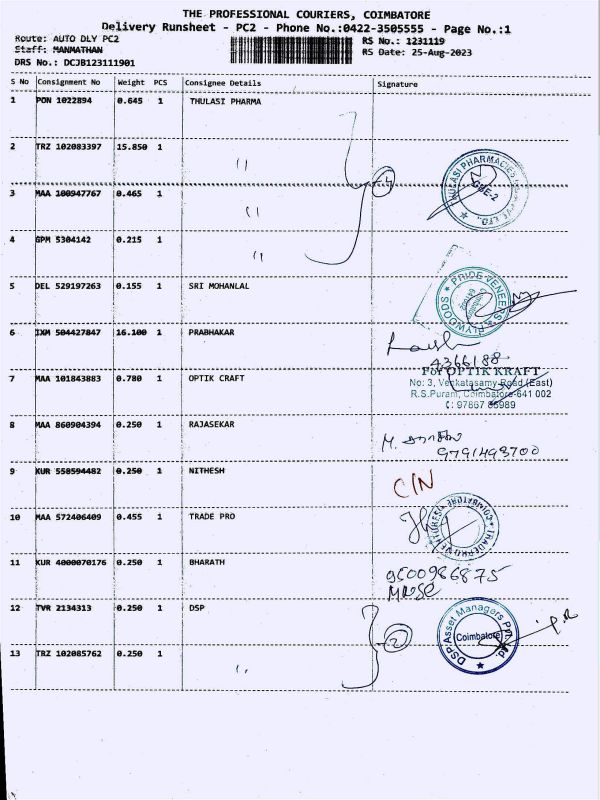 THE PROFESSIONAL COURIERS, COIMBATORE
Delivery Runsheet - PC2 - Phone No.:0422-3505555 - Page No.:1
Route: AUTO DLY PC2 RS No.: 1231119
Staff: MANMATHAN RS Date: 25-Aug-2023
DRS No.: DCJB123111901
S No Consignment No Weight PCS Consignee Details Signature
1 PON 1022894 0.645 1 THULASI PHARMA
2 TRZ 102083397 15.850 1 "
THULASI PHARMACIES
CBE-2
3 MAA 100947767 0.465 1 "
4
4 GPM 5304142 0.215 1 "
5 DEL 529197263 0.155 1 SRI MOHANLAL
PRIDE VENEERS & PLYWOODS
6 IXM 504427847 16.100 1 PRABHAKAR
4366188
7 MAA 101843883 0.780 1 OPTIK CRAFT
For OPTIK KRAFT
No: 3, Venkatasamy Road (East)
R.S.Puram, Coimbatore-641 002
8 MAA 860904394 0.250 1 RAJASEKAR
9791493700
9 KUR 558594482 0.250 1 NITHESH
C/N
10 MAA 572406409 0.455 1 TRADE PRO
COIMBATORE
11 KUR 4000070176 0.250 1 BHARATH
9500986875
12 TVR 2134313 0.250 1 DSP
DSP Asset Managers Pvt. Ltd.
Coimbatore
2
13 TRZ 102085762 0.250 1 "